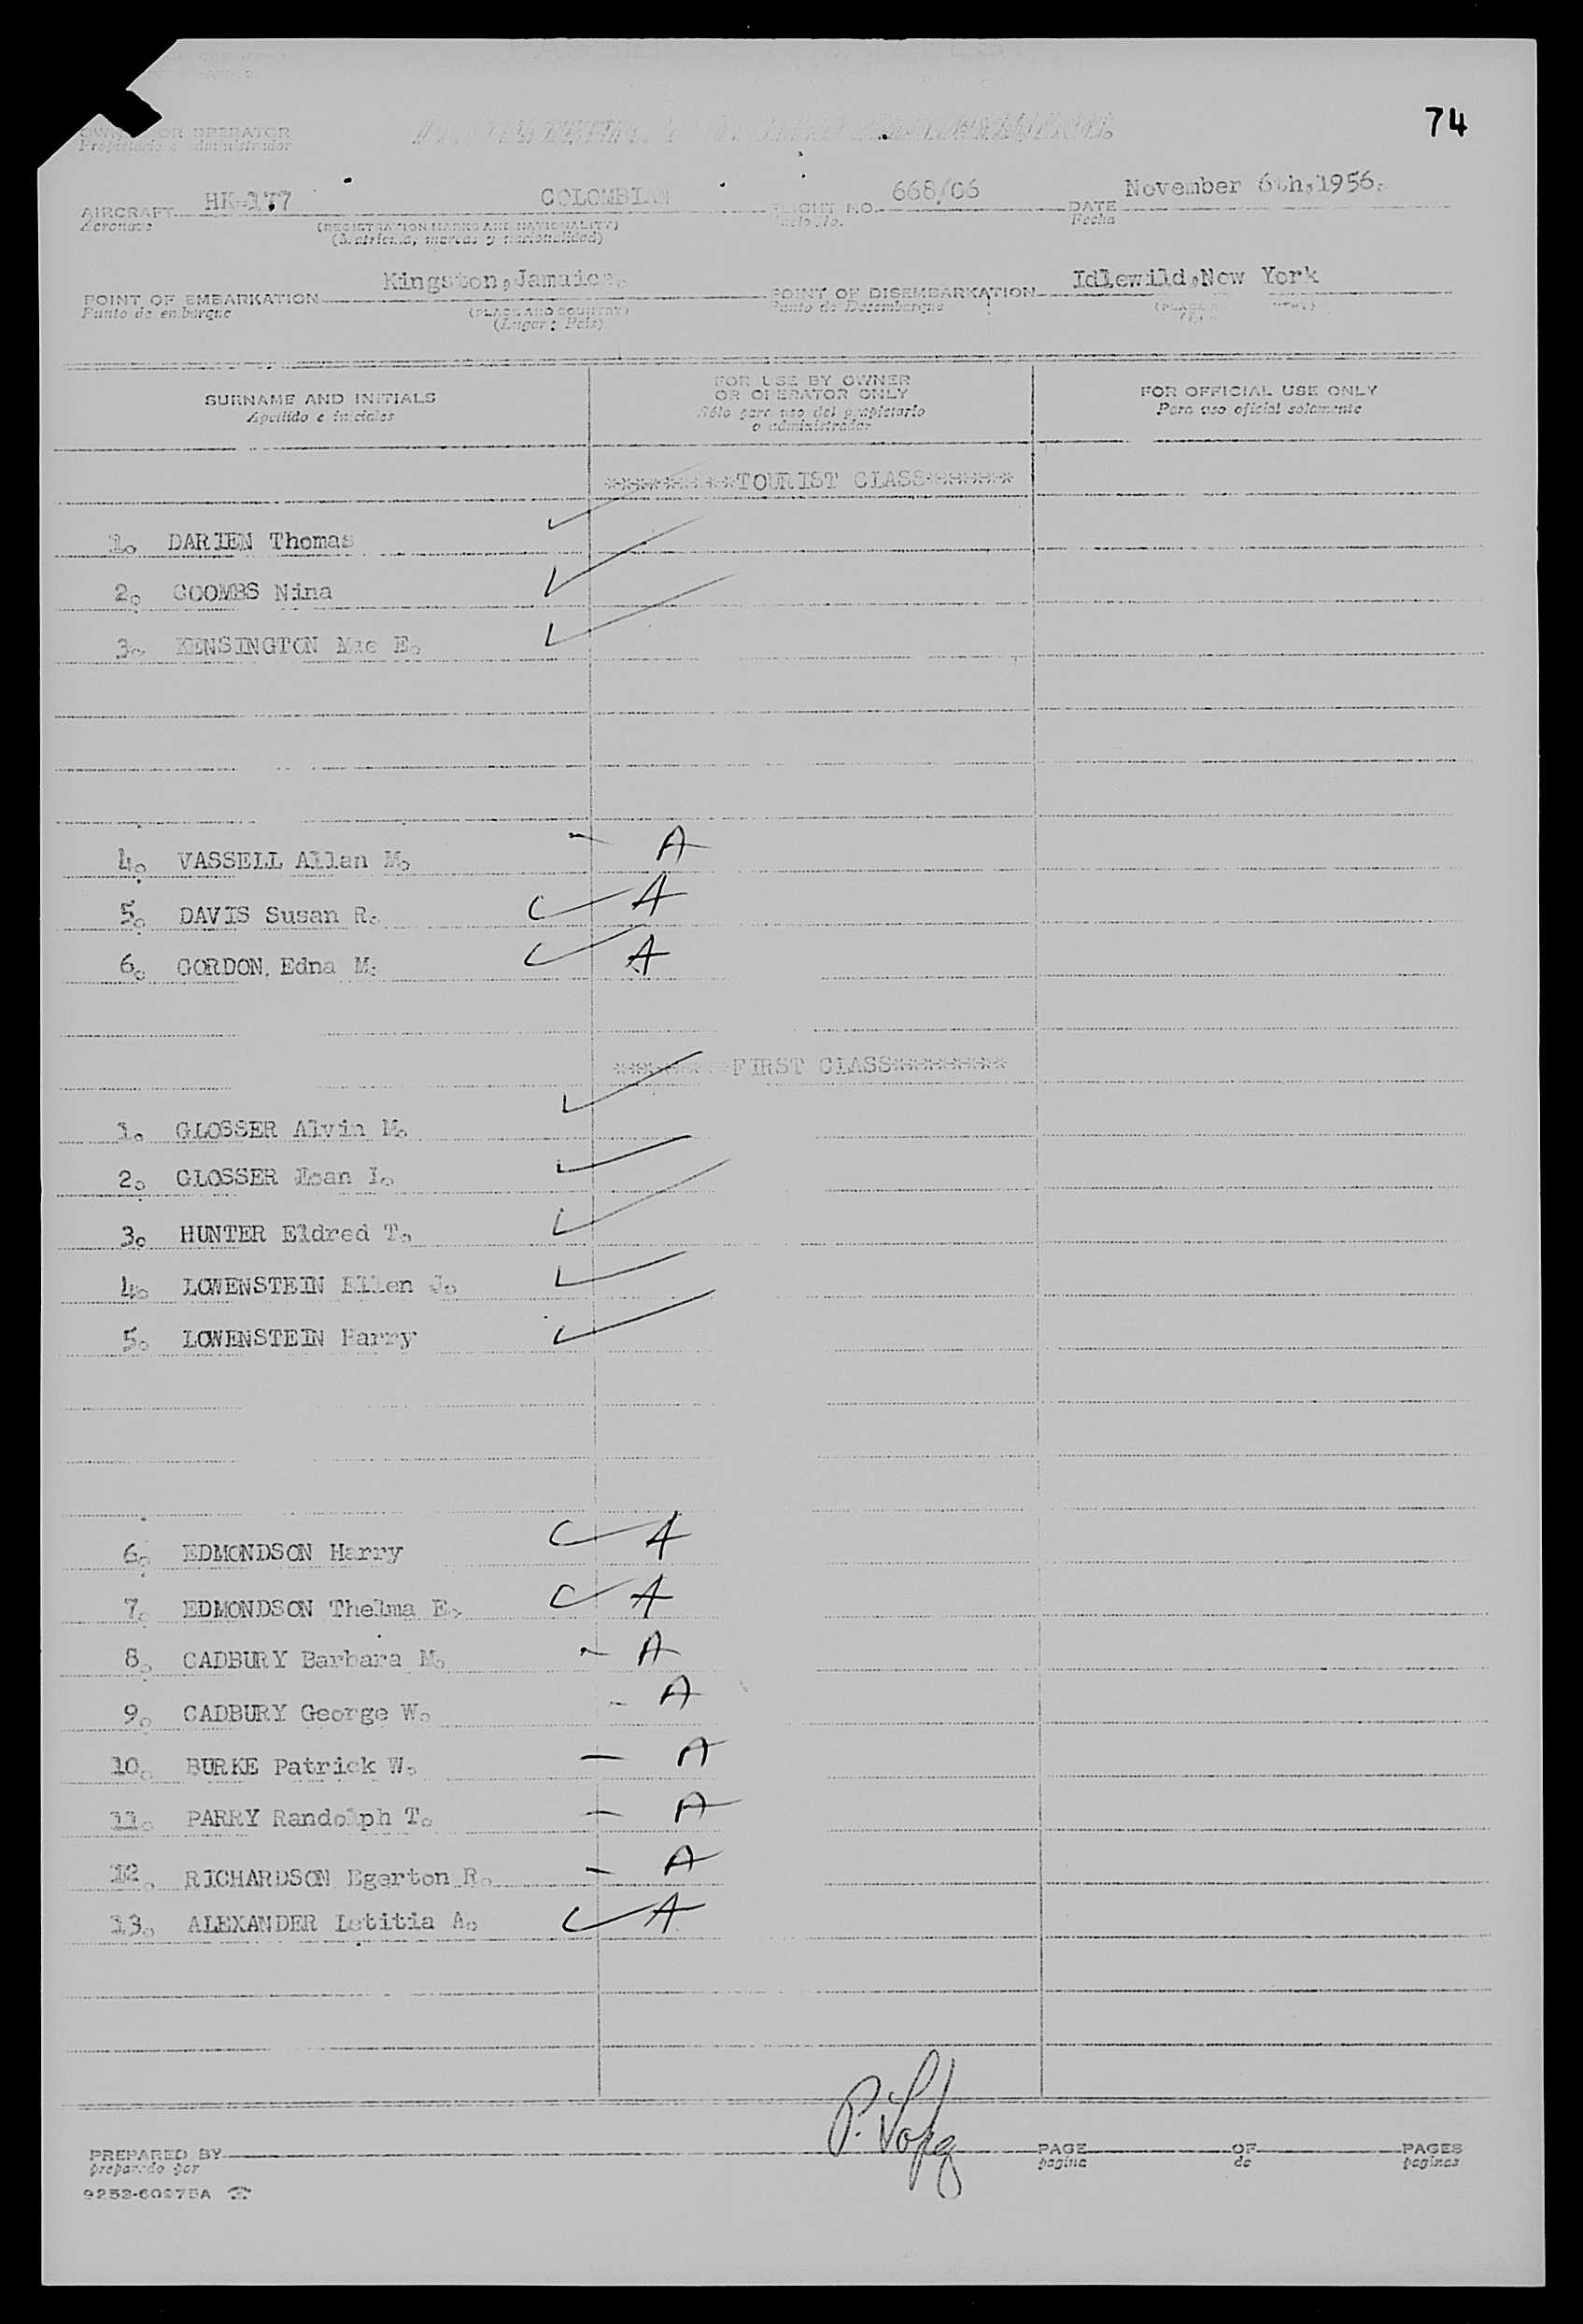 74
OWNER OR OPERATOR
Propietario o administrador
AIRCRAFT HK-177 COLOMBIAN FLIGHT NO. 668/06 DATE November 6th,1956.
Aeronave (REGISTRATION MARKS AND NATIONALITY) Vuelo No. Fecha
(Matrícula, marcas y nacionalidad)
POINT OF EMBARKATION Kingston,Jamaica. POINT OF DISEMBARKATION Idlewild,New York
Punto de embarque (PLACE AND COUNTRY) Punto de Desembarque
(Lugar y País)
SURNAME AND INITIALS FOR USE BY OWNER OR OPERATOR ONLY FOR OFFICIAL USE ONLY
Apellido e iniciales Sólo para uso del propietario o administrador Para uso oficial solamente
********TOURIST CLASS******
1. DARIEN Thomas ✓
2. COOMBS Nina ✓
3. KENSINGTON Mae E. ✓
4. VASSELL Allan M. - A
5. DAVIS Susan R. ✓ A
6. GORDON, Edna M. ✓ A
********FIRST CLASS********
1. GLOSSER Alvin M. ✓
2. GLOSSER Joan I. ✓
3. HUNTER Eldred T. ✓
4. LOWENSTEIN Ellen J. ✓
5. LOWENSTEIN Harry ✓
6. EDMONDSON Harry ✓ A
7. EDMONDSON Thelma E. ✓ A
8. CADBURY Barbara M. - A
9. CADBURY George W. - A
10. BURKE Patrick W. - A
11. PARRY Randolph T. - A
12. RICHARDSON Egerton R. - A
13. ALEXANDER Letitia A. ✓ A
PREPARED BY P. Lopez PAGE OF PAGES
preparado por pagina de paginas
9253-60275A